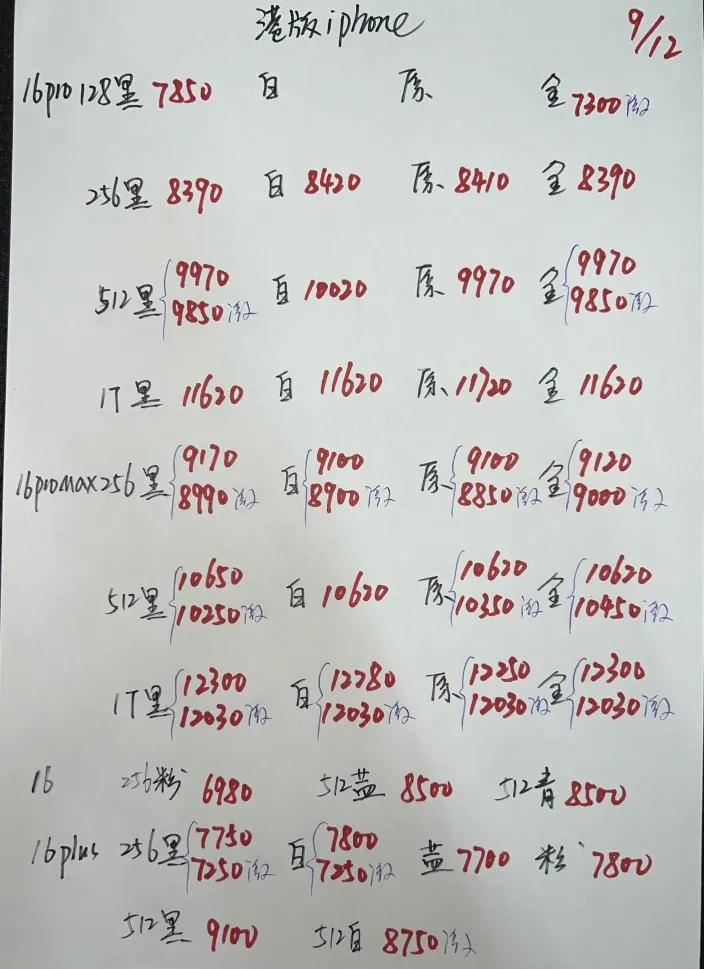 港版iphone 9/12
16pro 128黑 7850 白 原 金 7300激
256黑 8390 白 8420 原 8410 金 8390
512黑 9970 白 10020 原 9970 金 9970
9850激 9850激
1T黑 11620 白 11620 原 11720 金 11620
16promax256黑 9170 白 9100 原 9100 金 9120
8990激 8900激 8850激 9000激
512黑 10650 白 10620 原 10620 金 10620
10250激 10350激 10450激
1T黑 12300 白 12280 原 12250 金 12300
12030激 12030激 12030激 12030激
16 256粉 6980 512蓝 8500 512青 8500
16plus 256黑 7750 白 7800 蓝 7700 粉 7800
7250激 7250激
512黑 9100 512白 8750激